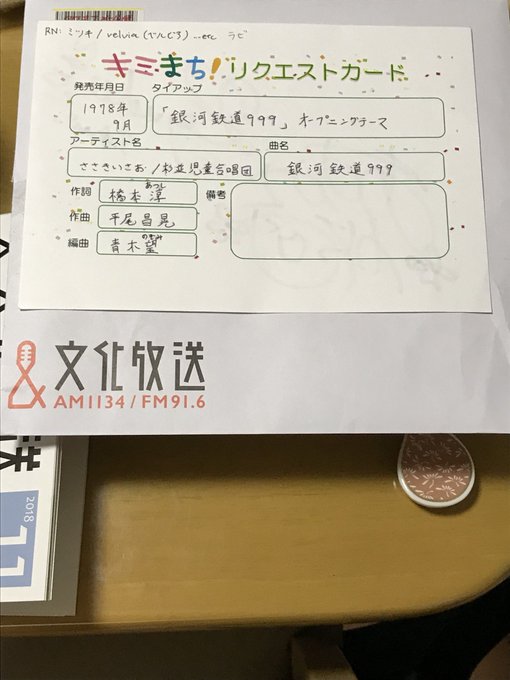 RN: ミツキ / velvia (べんじろ) …etc ラビ
キミまち!リクエストカード
発売年月日 タイアップ
1978年
9月
「銀河鉄道999」 オープニングテーマ
アーティスト名 曲名
ささきいさお/杉並児童合唱団 銀河鉄道999
作詞 橋本淳 あつし 備考
作曲 平尾昌晃
編曲 青木望 のぞみ
文化放送
AM1134/FM91.6
2018
11
送